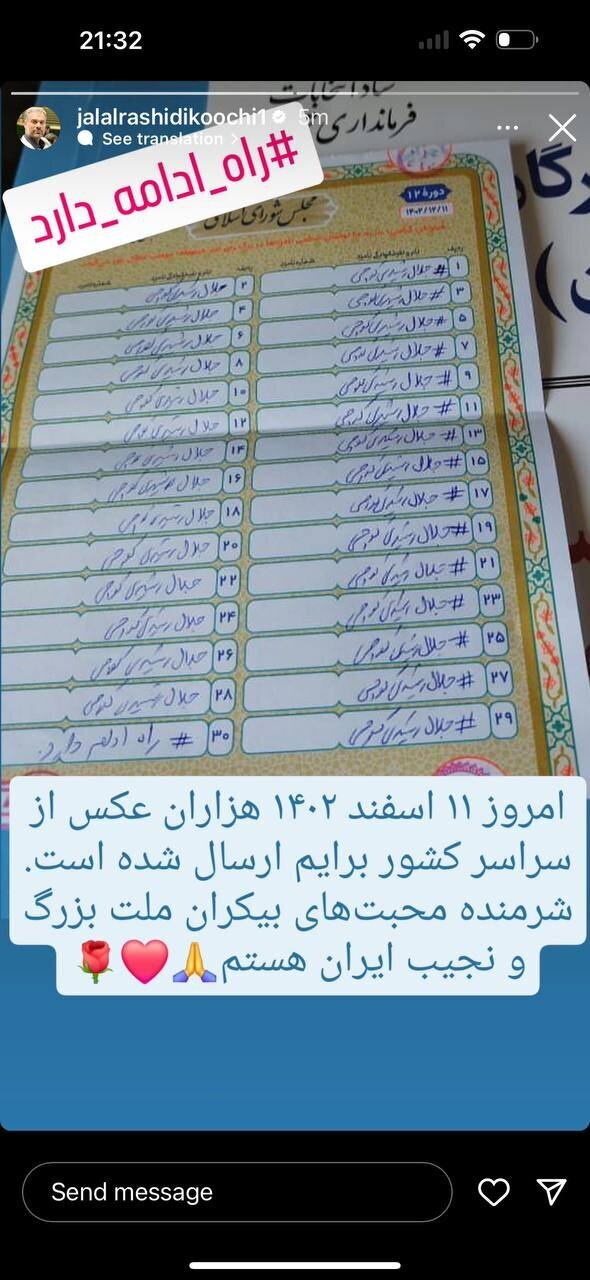 21:32
jalalrashidikoochi1 5m
See translation >
ستاد انتخابات
فرمانداری
#راه_ادامه_دارد
دوره ۱۲
۱۴۰۲/۱۲/۱۱
مجلس شورای اسلامی
ردیف نام و نام خانوادگی نامزد شماره نامزد ردیف نام و نام خانوادگی نامزد شماره نامزد
۱ #جلال رشیدی کوچی
۲ جلال رشیدی کوچی
۳ #جلال رشیدی کوچی
۴ جلال رشیدی کوچی
۵ #جلال رشیدی کوچی
۶ جلال رشیدی کوچی
۷ #جلال رشیدی کوچی
۸ جلال رشیدی کوچی
۹ #جلال رشیدی کوچی
۱۰ جلال رشیدی کوچی
۱۱ #جلال رشیدی کوچی
۱۲ جلال رشیدی کوچی
۱۳ #جلال رشیدی کوچی
۱۴ جلال رشیدی کوچی
۱۵ #جلال رشیدی کوچی
۱۶ جلال رشیدی کوچی
۱۷ #جلال رشیدی کوچی
۱۸ جلال رشیدی کوچی
۱۹ #جلال رشیدی کوچی
۲۰ جلال رشیدی کوچی
۲۱ #جلال رشیدی کوچی
۲۲ جلال رشیدی کوچی
۲۳ #جلال رشیدی کوچی
۲۴ جلال رشیدی کوچی
۲۵ #جلال رشیدی کوچی
۲۶ جلال رشیدی کوچی
۲۷ #جلال رشیدی کوچی
۲۸ جلال رشیدی کوچی
۲۹ #جلال رشیدی کوچی
۳۰ # راه ادامه دارد.
امروز ۱۱ اسفند ۱۴۰۲ هزاران عکس از
سراسر کشور برایم ارسال شده است.
شرمنده محبت‌های بیکران ملت بزرگ
و نجیب ایران هستم🙏❤️🌹
Send message